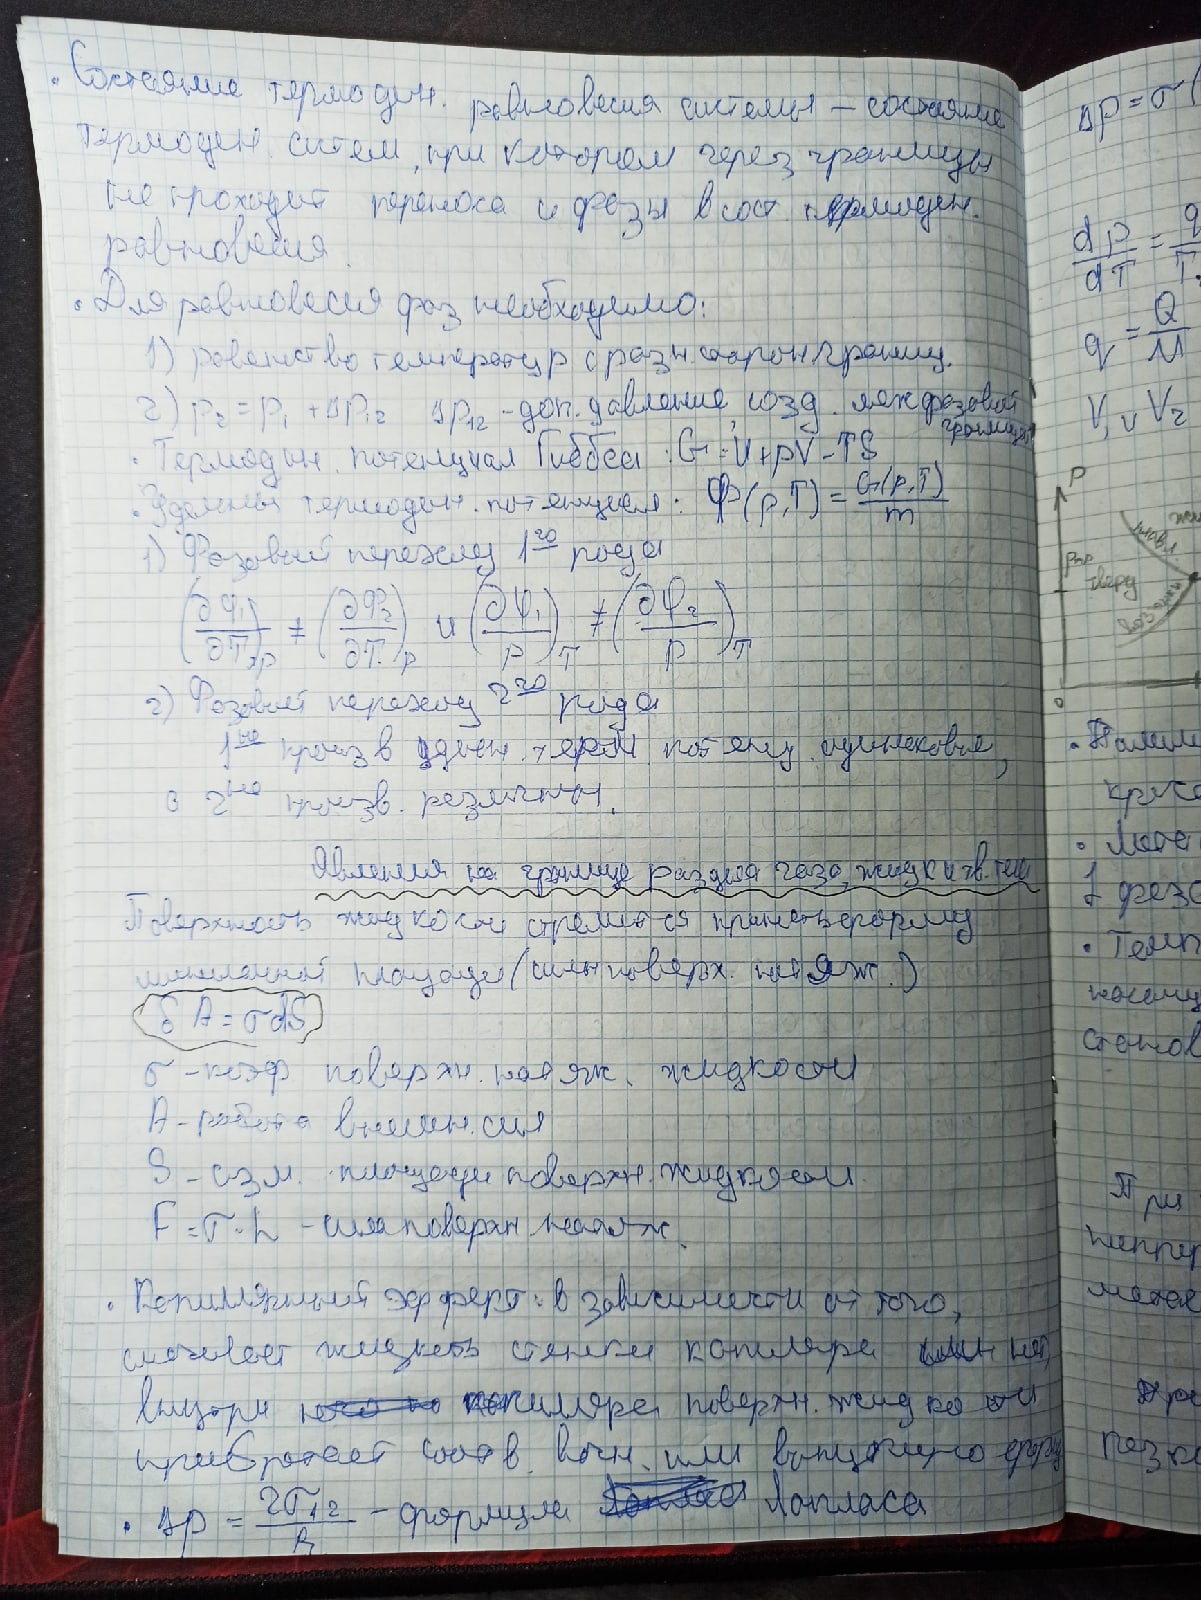 • Состояние термодин. равновесия системы – состояние
термодин. систем, при котором через границы
не проходит переноса и фазы в сост. термодин.
равновесия.
• Для равновесия фаз необходимо:
1) равенство температур с разн. сторон границ.
2) p₂ = p₁ + Δp₁₂ Δp₁₂ – доп. давление, созд. межфазовой
границы
• Термодин. потенциал Гиббса: G = U + pV – TS
• Удельный термодин. потенциал: Φ(p,T) = G(p,T)/m
1) Фазовый переход 1го рода
(∂φ₁/∂T)p ≠ (∂φ₂/∂T)p и (∂φ₁/p)T ≠ (∂φ₂/p)T
2) Фазовый переход 2го рода
1ые произв удельн. терм потенц. одинаковые,
а 2ые произв. различны.
Явления на границе раздела газа, жидк и тв. тела
Поверхность жидкости стремится принять форму
минимальной площади (силы поверх. натяж.)
δA = σdS
σ – коэф поверхн. натяж. жидкости
A – работа внешн. сил
S – изм. площади поверхн. жидкости.
F = σ·L – сила поверхн натяж.
• Капиллярный эффект: в зависимости от того,
смачивает жидкость стенки капиляра или нет,
внутри капилляра поверхн. жидкости
приобретает соотв. вогн. или выпуклую форму
• Δp = 2σ₁₂/R – формула Лапласа
Δp = σ(
dp/dT = q/T
q = Q/M
V₁ и V₂
p
pтр
тверд
плавл
0
• Темп
При